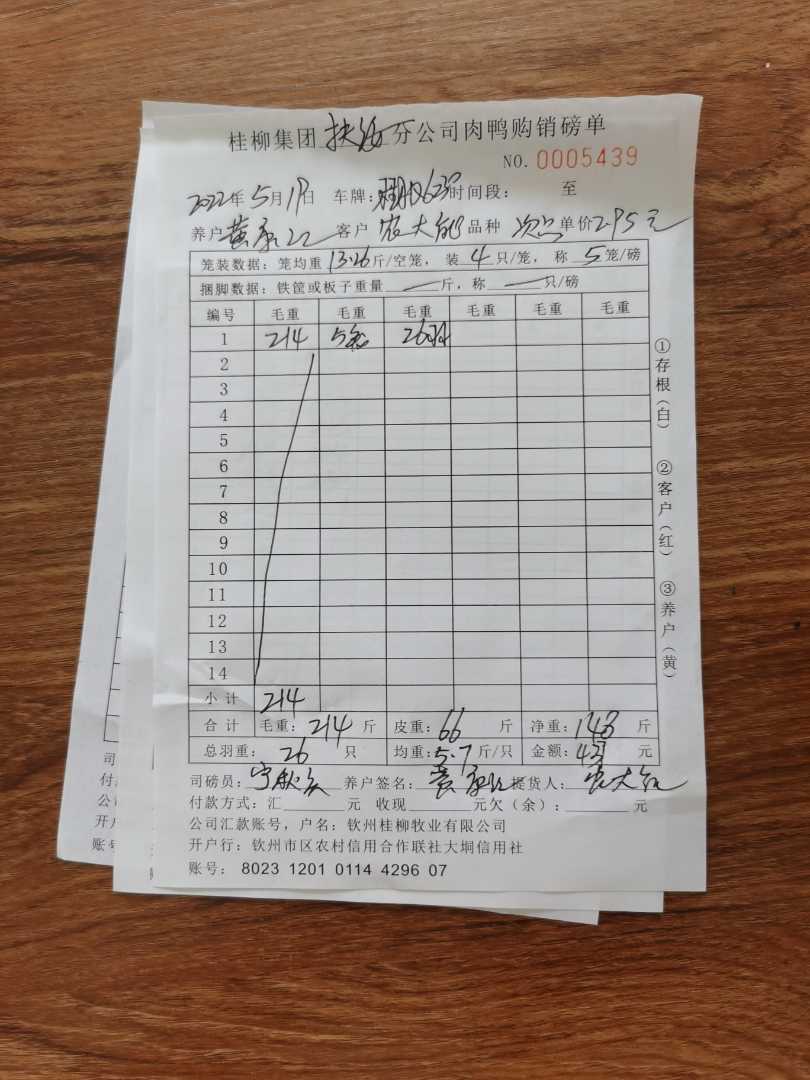 桂柳集团 扶绥 分公司肉鸭购销磅单
NO. 0005439
2022年5月19日 车牌: 时间段: 至
养户 黄 客户 农大能 品种 次品 单价 2.95 元
笼装数据: 笼均重 13.26 斤/空笼, 装 4 只/笼, 称 5 笼/磅
捆脚数据: 铁筐或板子重量 — 斤, 称 — 只/磅
编号 毛重 毛重 毛重 毛重 毛重 毛重
1 214 5笼 26羽
2
3
4
5
6
7
8
9
10
11
12
13
14
小计 214
合计 毛重: 214 斤 皮重: 66 斤 净重: 148 斤
总羽重: 26 只 均重: 5.7 斤/只 金额: 437 元
司磅员: 养户签名: 黄 提货人: 农大
付款方式: 汇 元 收现 元欠(余): 元
公司汇款账号, 户名: 钦州桂柳牧业有限公司
开户行: 钦州市区农村信用合作联社大垌信用社
账号: 8023 1201 0114 4296 07
①存根(白) ②客户(红) ③养户(黄)
司
付
公
开户
账号